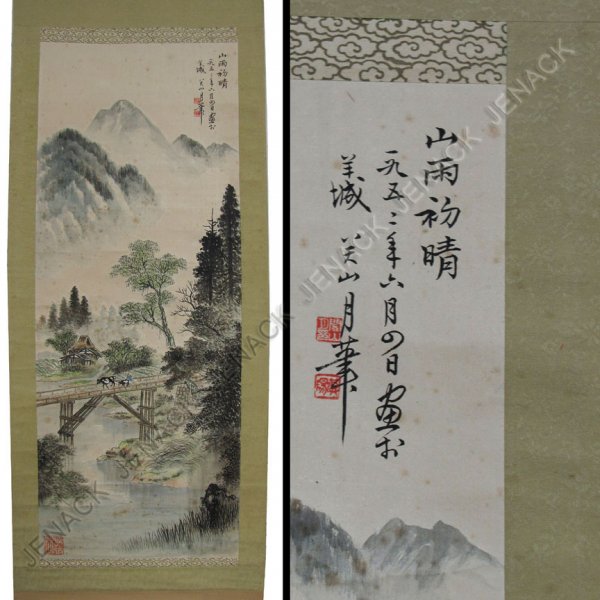 山雨初晴
一九五二年六月四日画於
羊城 关山月笔
JENACK